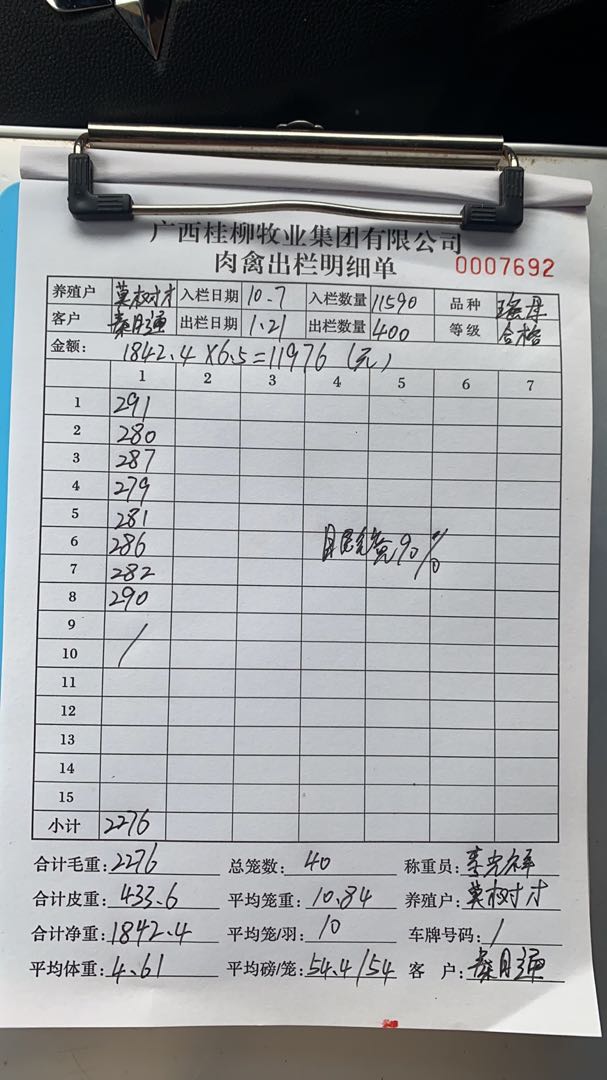 广西桂柳牧业集团有限公司
肉禽出栏明细单 0007692
养殖户 莫树才 入栏日期 10.7 入栏数量 11590 品种 瑶丹
客户 秦月强 出栏日期 1.21 出栏数量 400 等级 合格
金额: 1842.4×6.5=11976(元)
1 2 3 4 5 6 7
1 291
2 280
3 287
4 279
5 281
6 286 90%
7 282
8 290
9
10 /
11
12
13
14
15
小计 2276
合计毛重: 2276 总笼数: 40 称重员:
合计皮重: 433.6 平均笼重: 10.84 养殖户: 莫树才
合计净重: 1842.4 平均笼/羽: 10 车牌号码: /
平均体重: 4.61 平均磅/笼: 54.4/54 客 户: 秦月强